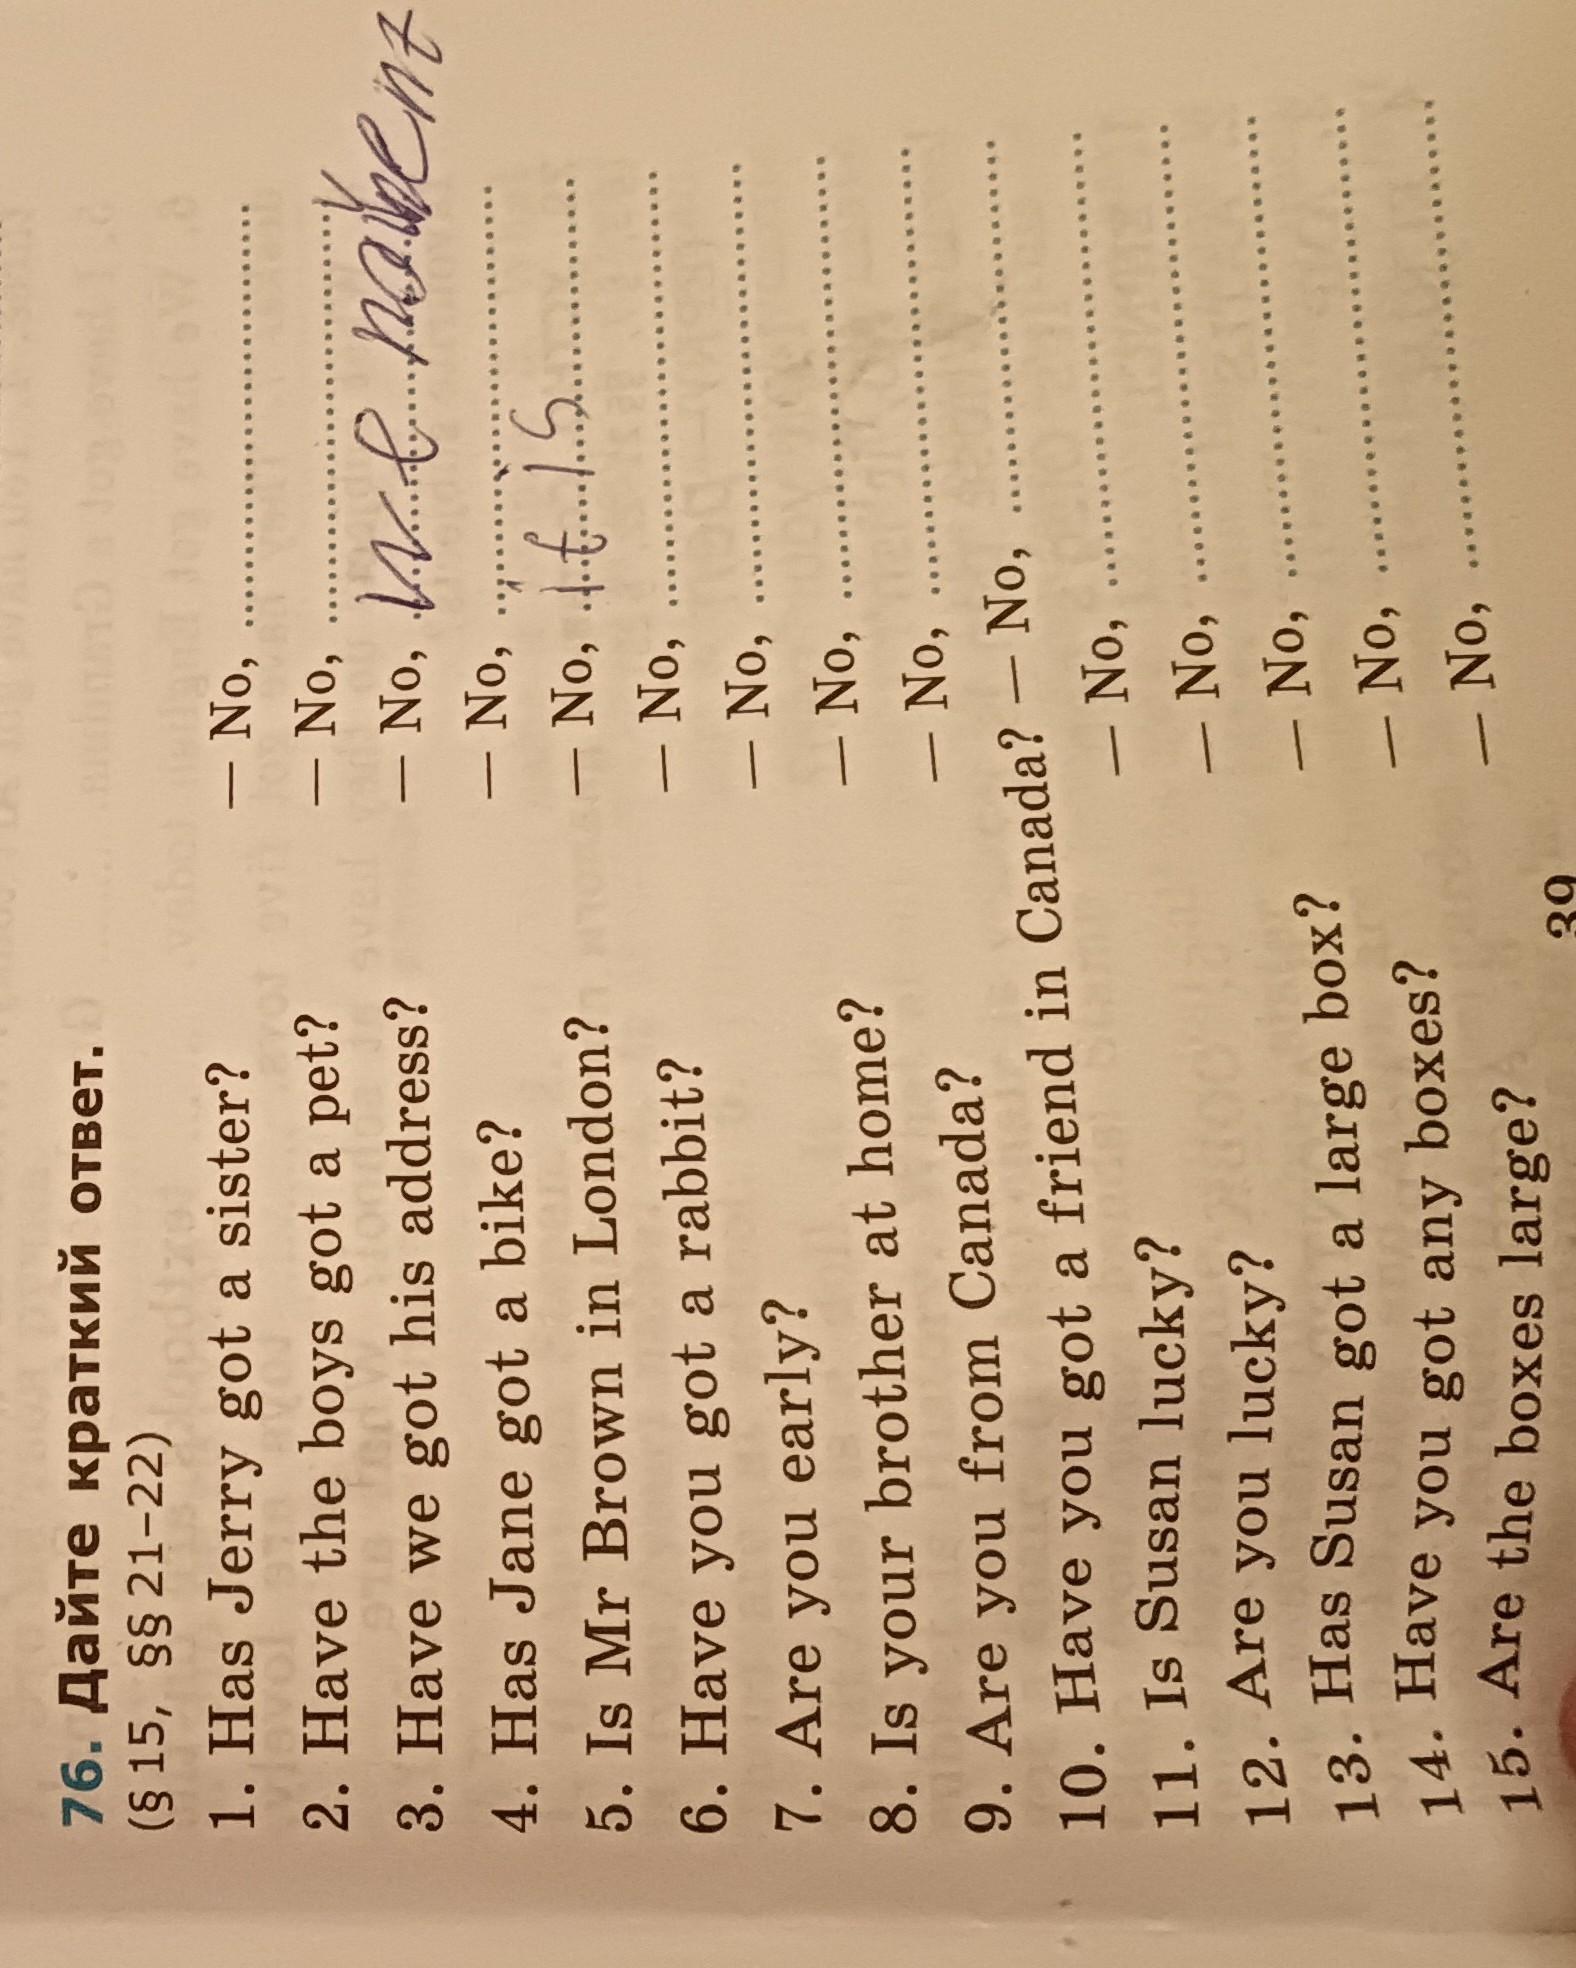 76. Дайте краткий ответ.
(§ 15, §§ 21–22)
1. Has Jerry got a sister? — No, ..............................
2. Have the boys got a pet? — No, ..............................
3. Have we got his address? — No, we haven't
4. Has Jane got a bike? — No, ..............................
5. Is Mr Brown in London? — No, it is
6. Have you got a rabbit? — No, ..............................
7. Are you early? — No, ..............................
8. Is your brother at home? — No, ..............................
9. Are you from Canada? — No, ..............................
10. Have you got a friend in Canada? — No, ..............................
11. Is Susan lucky? — No, ..............................
12. Are you lucky? — No, ..............................
13. Has Susan got a large box? — No, ..............................
14. Have you got any boxes? — No, ..............................
15. Are the boxes large? — No, ..............................
39